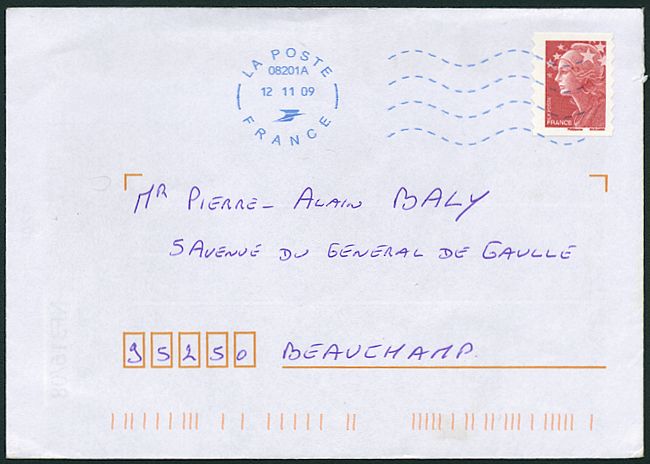 LA POSTE
08201A
12 11 09
FRANCE
FRANCE
Mr PIERRE-ALAIN BALY
5 AVENUE DU GENERAL DE GAULLE
95250 BEAUCHAMP